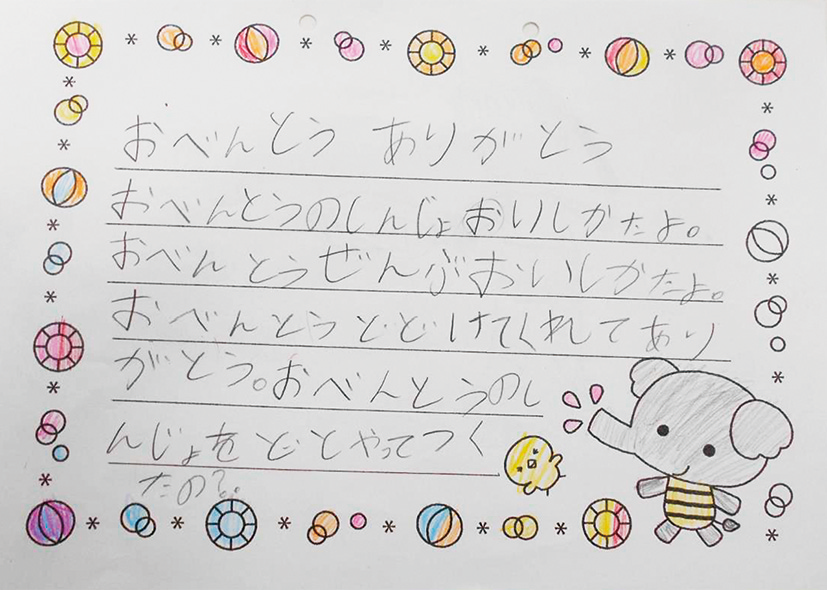 おべんとう ありがとう
おべんとうのしんじょおいしかたよ。
おべんとうぜんぶおいしかたよ。
おべんとうとどけてくれてあり
がとう。おべんとうのし
んじょをどとやってつく
たの?。